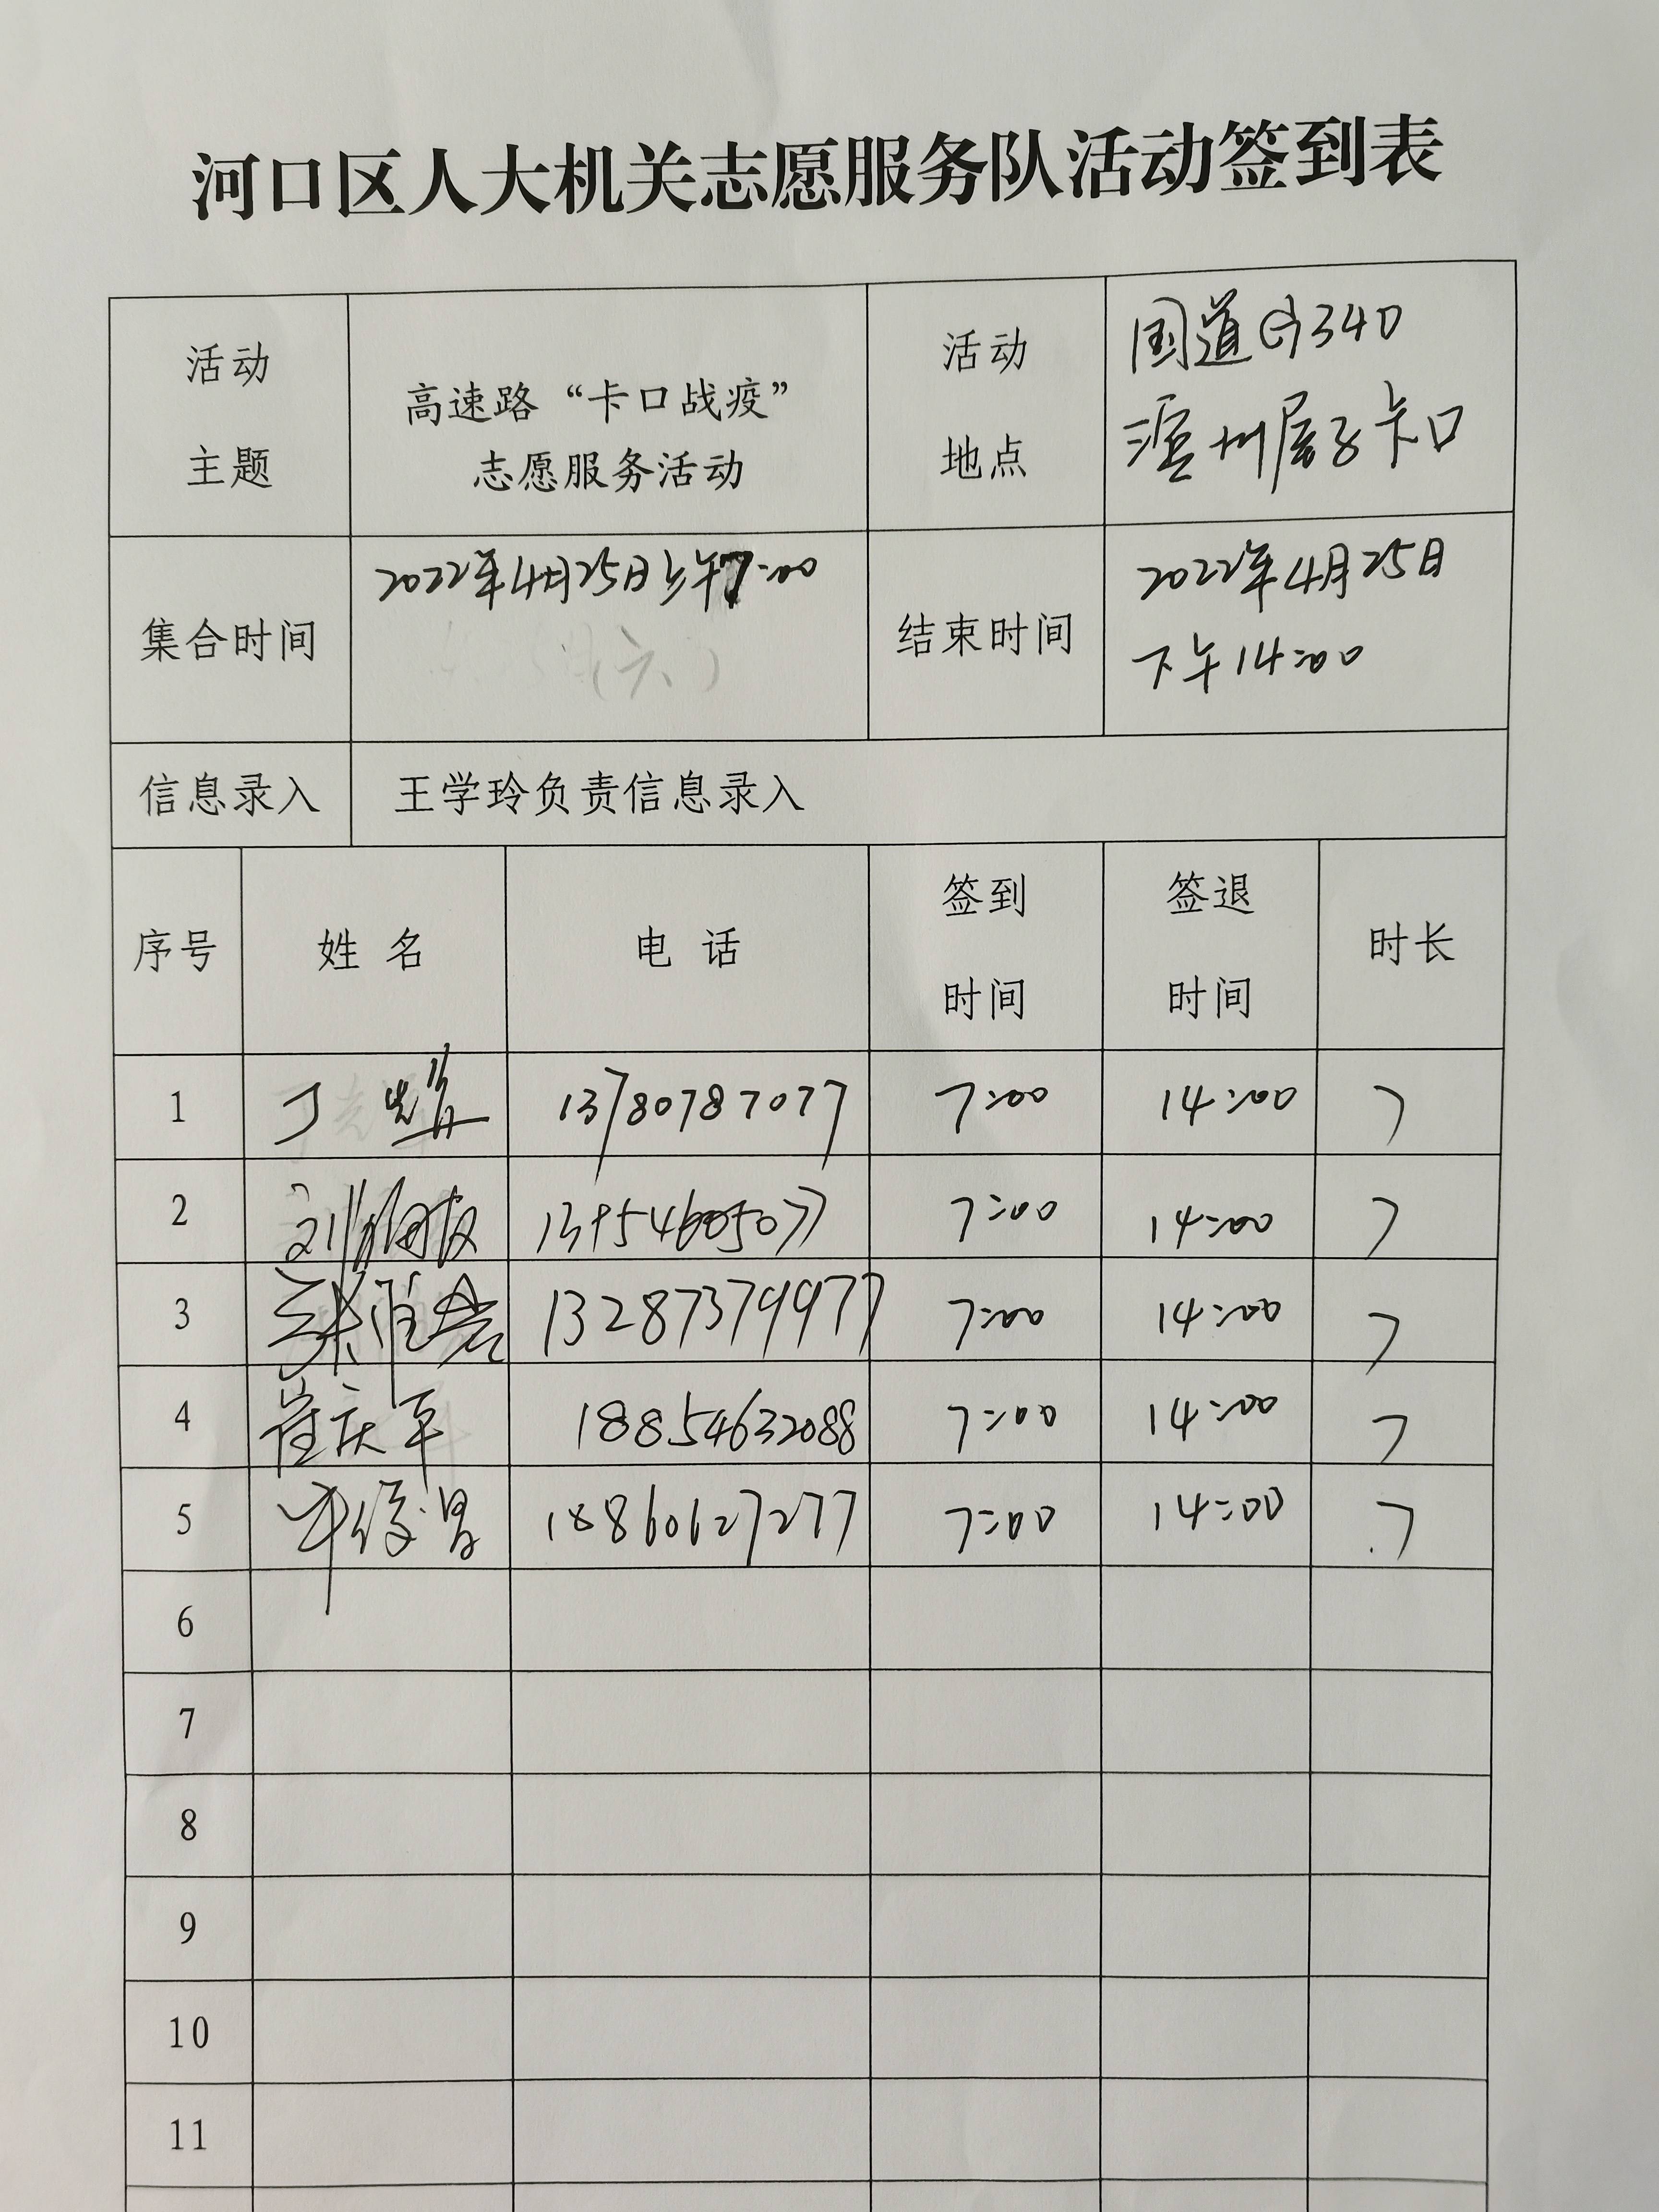 河口区人大机关志愿服务队活动签到表
活动
主题
高速路“卡口战疫”
志愿服务活动
活动
地点
国道G340
州屋子卡口
集合时间
2022年4月25日上午7:00
(六)
结束时间
2022年4月25日
下午14:00
信息录入
王学玲负责信息录入
序号
姓 名
电 话
签到
时间
签退
时间
时长
1 丁 13780787077 7:00 14:00 7
2 刘 13954605077 7:00 14:00 7
3 13287379977 7:00 14:00 7
4 崔庆军 18854632088 7:00 14:00 7
5 牛俊昌 18860627277 7:00 14:00 7
6
7
8
9
10
11